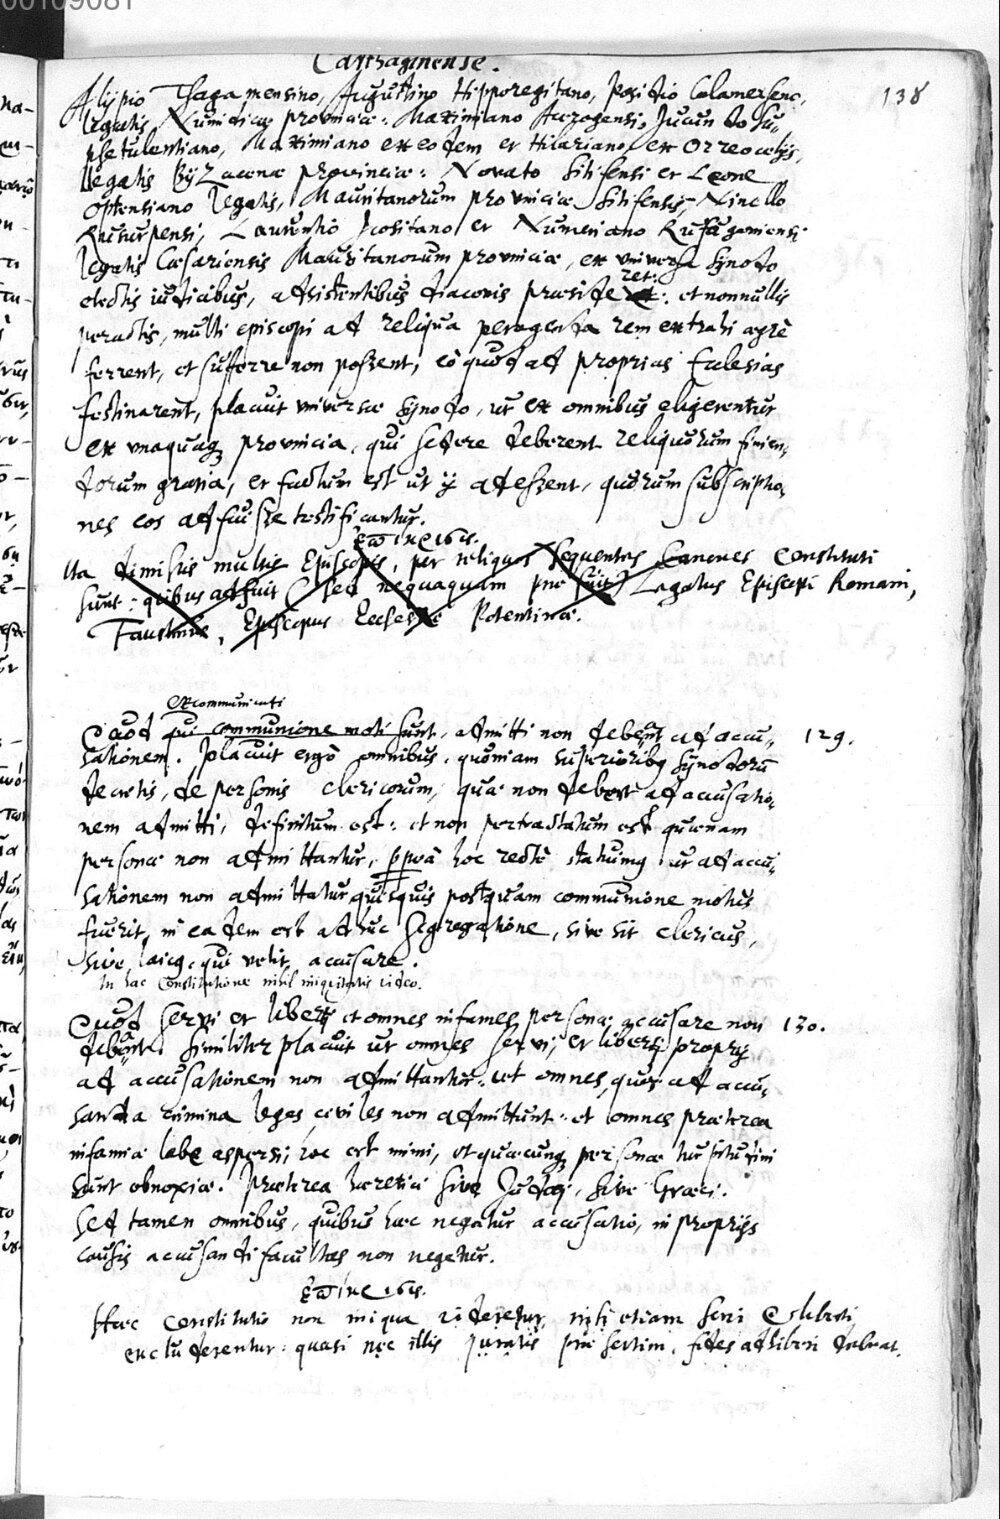 00109081
Carthaginense.
138
Alypio Thagamensino, Augustino Hipporegitano, Positio Calamensene,
legatis Numidicae provinciae: Maximiano Aurogensi, Jucundo Su-
phetulentiano, Maximiano ex eodem et Hilariano, ex Orreocelijs,
legatis Byzacenae provinciae: Novato Sitifensi et Leone
Optensiano legatis, Mauritanorum provinciae Sitifensis, Ninello
Rusurpensi, Laurentio Icositano et Numeriano Rusuganiensi
legatis Caesariensis Mauritanorum provinciae, ex universa synodo
ret:
electis iudicibus, adsistentibus diaconis praeside: et nonnullis
peractis, multi episcopi ad reliqua peragenda rem extrahi aegrè
ferrent, et sufferre non possent, eò quod ad proprias Eclesias
festinarent, placuit universae synodo, ut ex omnibus eligerentur
ex unaquaq provincia, qui sedere deberent reliquorum finien-
dorum gratia, et factum est ut ij adessent, quorum subscriptio-
nes eos adfuisse testificantur.
Ita dimissis multis Episcopis, per reliquos sequentes Canones constituti
sunt: quibus adfuit (sed nequaquam prae fuit) Legatus Episcopi Romani,
Faustinus, Episcopus Ecclesiae Potentinae.
excommunicati
Quod qui communione moti sunt, admitti non debent ad accu- 129.
sationem. Placuit ergò omnibus, quoniam superioribq synodorũ
decretis, de personis clericorum, quae non debent ad accusatio-
nem admitti, definitum est: et non pertractatum est quaenam
personae non admittantur, ꝓpeà hoc rectè statuimq ut ad accu-
sationem non admittatur quisquis postquam communione motus
fuerit, in eadem est adhuc segregatione, sive sit clericus,
sive laicq, qui velit accusare.
In hac Constitutione nihil iniquitatis video.
Quod servi et liberti et omnes infames personae accusare non 130.
debent. Similiter placuit ut omnes servi, et liberti proprij
ad accusationem non admittantur: et omnes, quos ad accu-
sanda crimina leges civiles non admittunt: et omnes praeterea
infamiae labe aspersi, hoc est mimi, et quaecunq personae turpitudini
sunt obnoxiae. Praeterea haeretici sive Judaei, sive Graeci.
Sed tamen omnibus, quibus haec negatur accusatio, in proprijs
causis accusandi facultas non negetur.
Haec constitutio non iniqua videretur, nisi etiam servi et liberti
excluderentur: quasi nec illis juratis praesertim, fides adhiberi debeat.